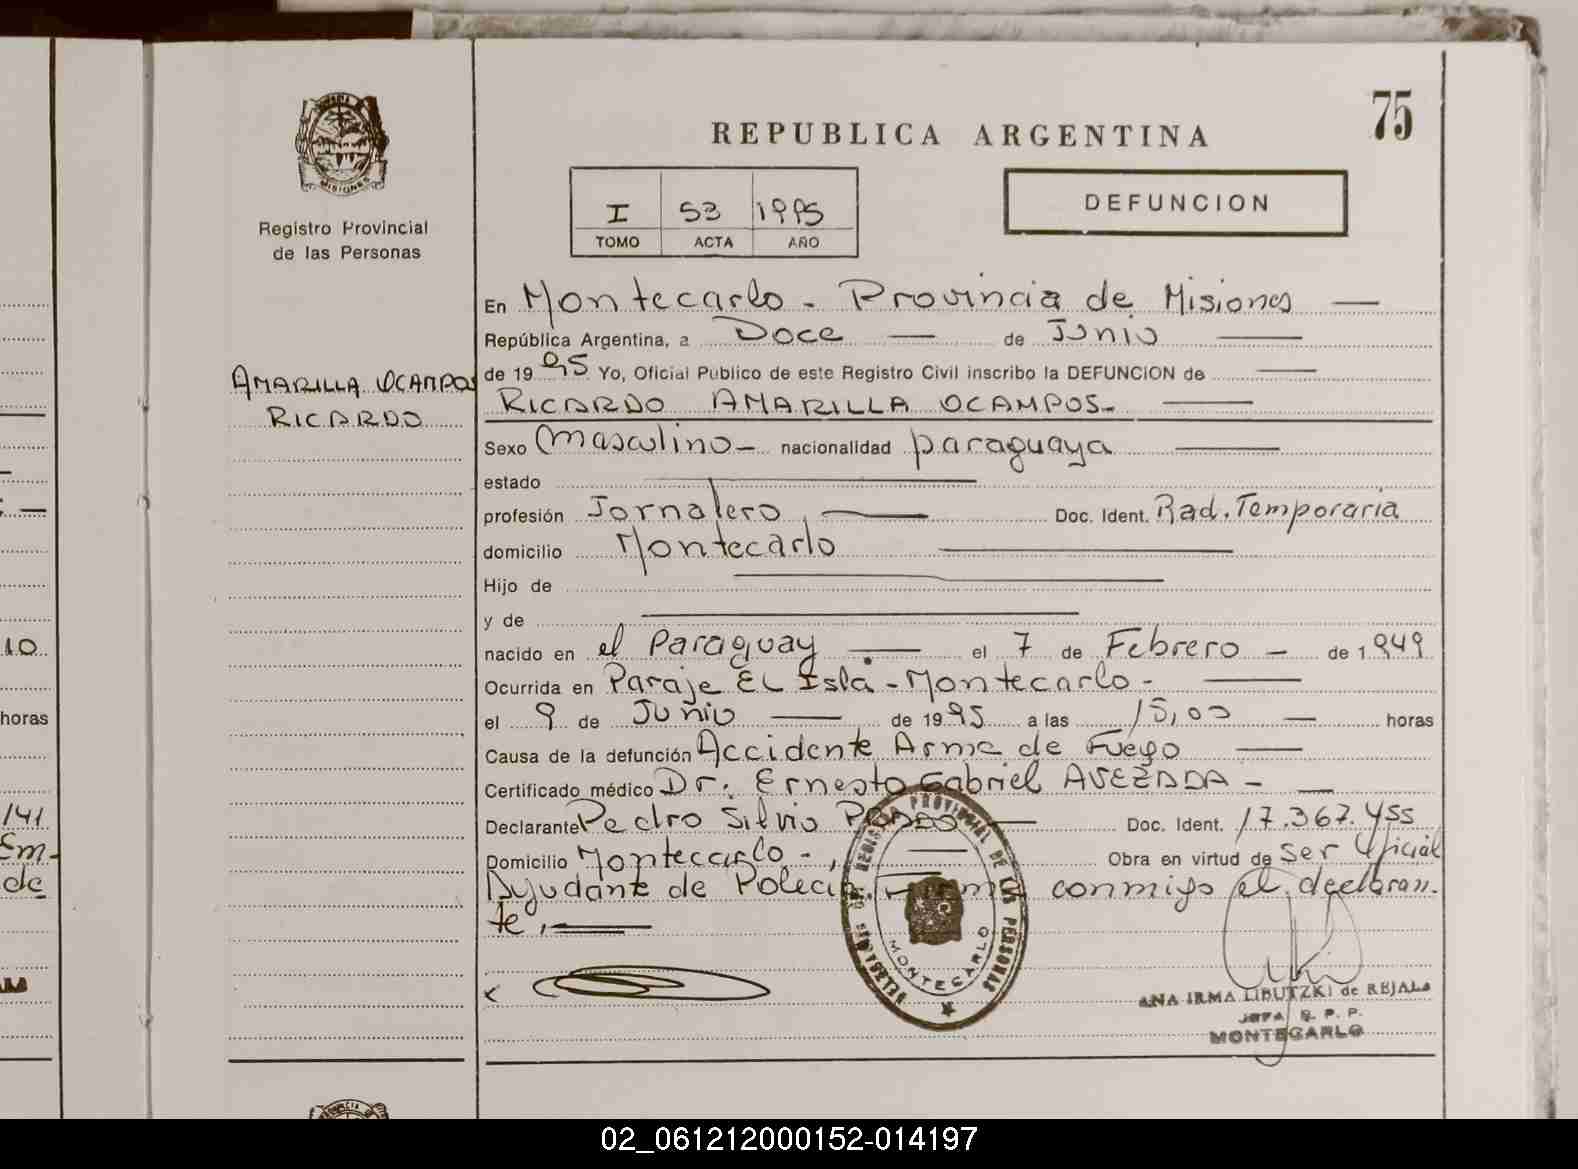 75
REPUBLICA ARGENTINA
PROVINCIA DE MISIONES
Registro Provincial
de las Personas
I 53 1995
TOMO ACTA AÑO
DEFUNCION
En Montecarlo - Provincia de Misiones —
República Argentina, a Doce — de Junio —
AMARILLA OCAMPOS
RICARDO
de 1995 Yo, Oficial Publico de este Registro Civil inscribo la DEFUNCION de —
RICARDO AMARILLA OCAMPOS- —
Sexo Masculino- nacionalidad paraguaya —
estado —
profesión Jornalero, — Doc. Ident. Rad. Temporaria
domicilio Montecarlo —
Hijo de —
y de —
nacido en el Paraguay — el 7 de Febrero - de 1.949
Ocurrida en Paraje EL Isla - Montecarlo - —
el 9 de Junio — de 1995 a las 15,00 — horas
Causa de la defunción Accidente Arma de Fuego —
Certificado médico Dr: Ernesto Gabriel AVEZADA - —
Declarante Pedro Silvio — Doc. Ident. 17.367.455
Domicilio Montecarlo -, — Obra en virtud de Ser Oficial
Ayudante de Policia, firma conmigo el declaran-
te, —
DELEGACION DEL REGISTRO PROVINCIAL DE LAS PERSONAS
MONTECARLO
ANA IRMA LIBUTZKI de REJALA
JEFA R. P. P.
MONTECARLO
10
horas
/41
Em-
de
02_061212000152-014197